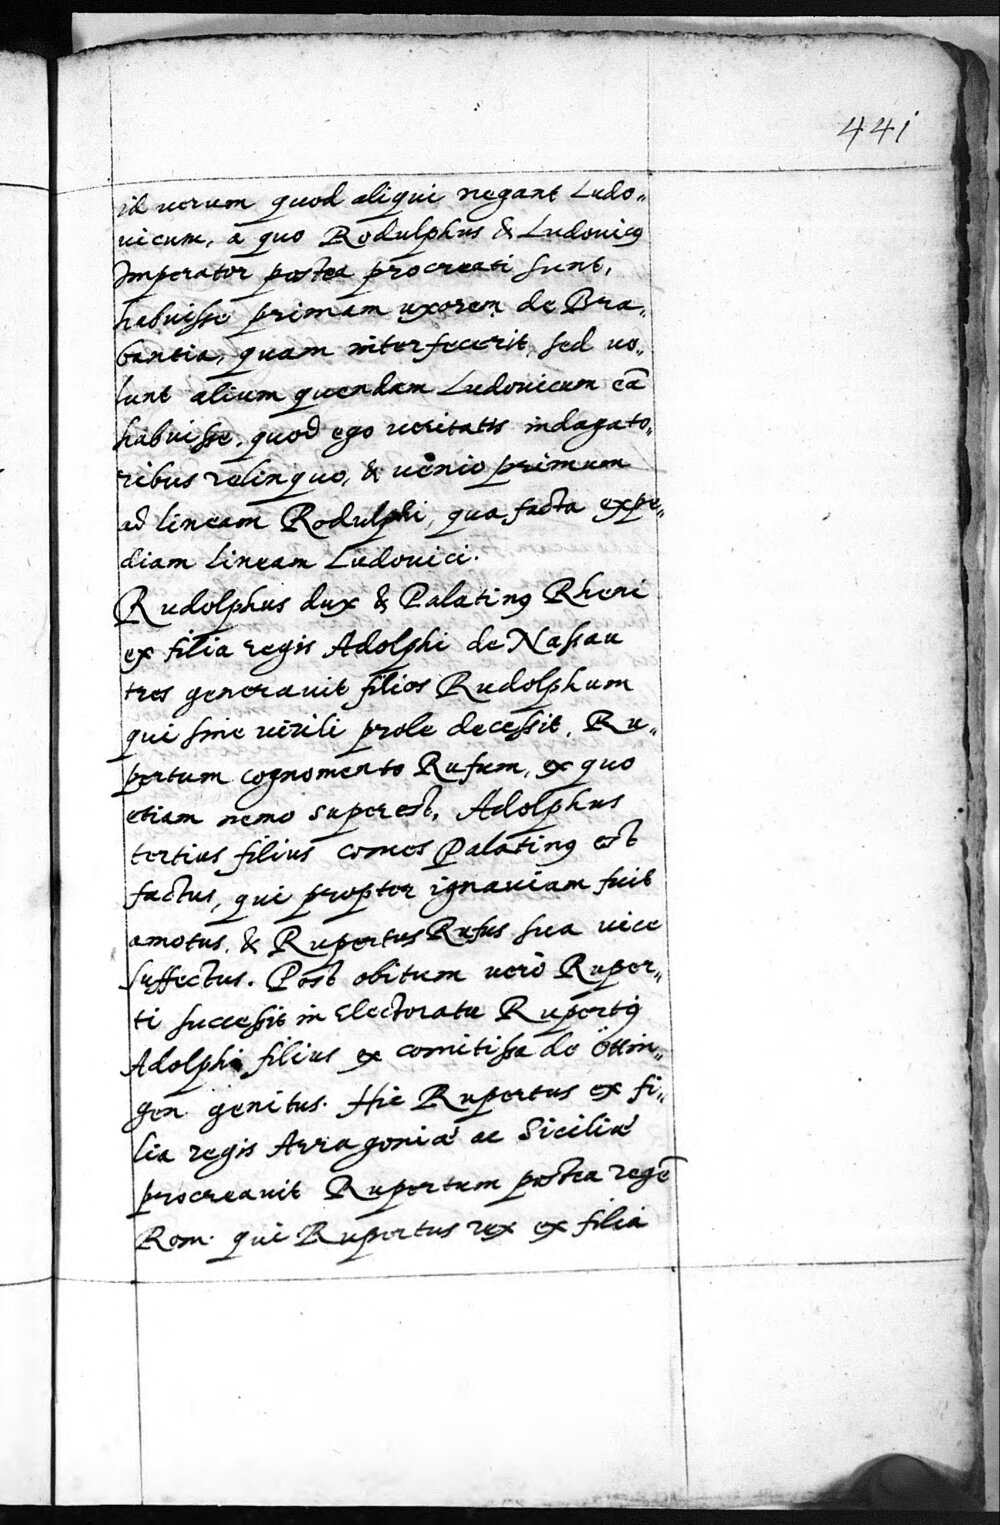 441
id uerum quod aliqui negant Ludo„
uicum, a quo Rodulphus & Ludouicꝰ
Imperator postea procreati sunt,
habuisse primam uxorem de Bra„
bantia, quam interfecerit, sed uo„
lunt alium quendam Ludouicum eā
habuisse, quod ego ueritatis indagato„
ribus relinquo, & uenio primum
ad lineam Rodulphi, qua facta expe„
diam lineam Ludouici.
Rudolphus dux & Palatinꝰ Rheni
ex filia regis Adolphi de Nassau
tres generauit filios Rudolphum
qui sine uirili prole decessit, Ru„
pertum cognomento Rufum, ex quo
etiam nemo superest, Adolphus
tertius filius comes Palatinꝰ est
factus, qui propter ignauiam fuit
amotus, & Rupertus Rufus sua uice
suffectus. Post obitum uerò Ruper„
ti successit in Electoratu Rupertꝰ
Adolphi filius ex comitissa de Ötin„
gen genitus. Hic Rupertus ex fi„
lia regis Arragoniæ ac Siciliæ
procreauit Rupertum postea regē
Rom. qui Rupertus rex ex filia